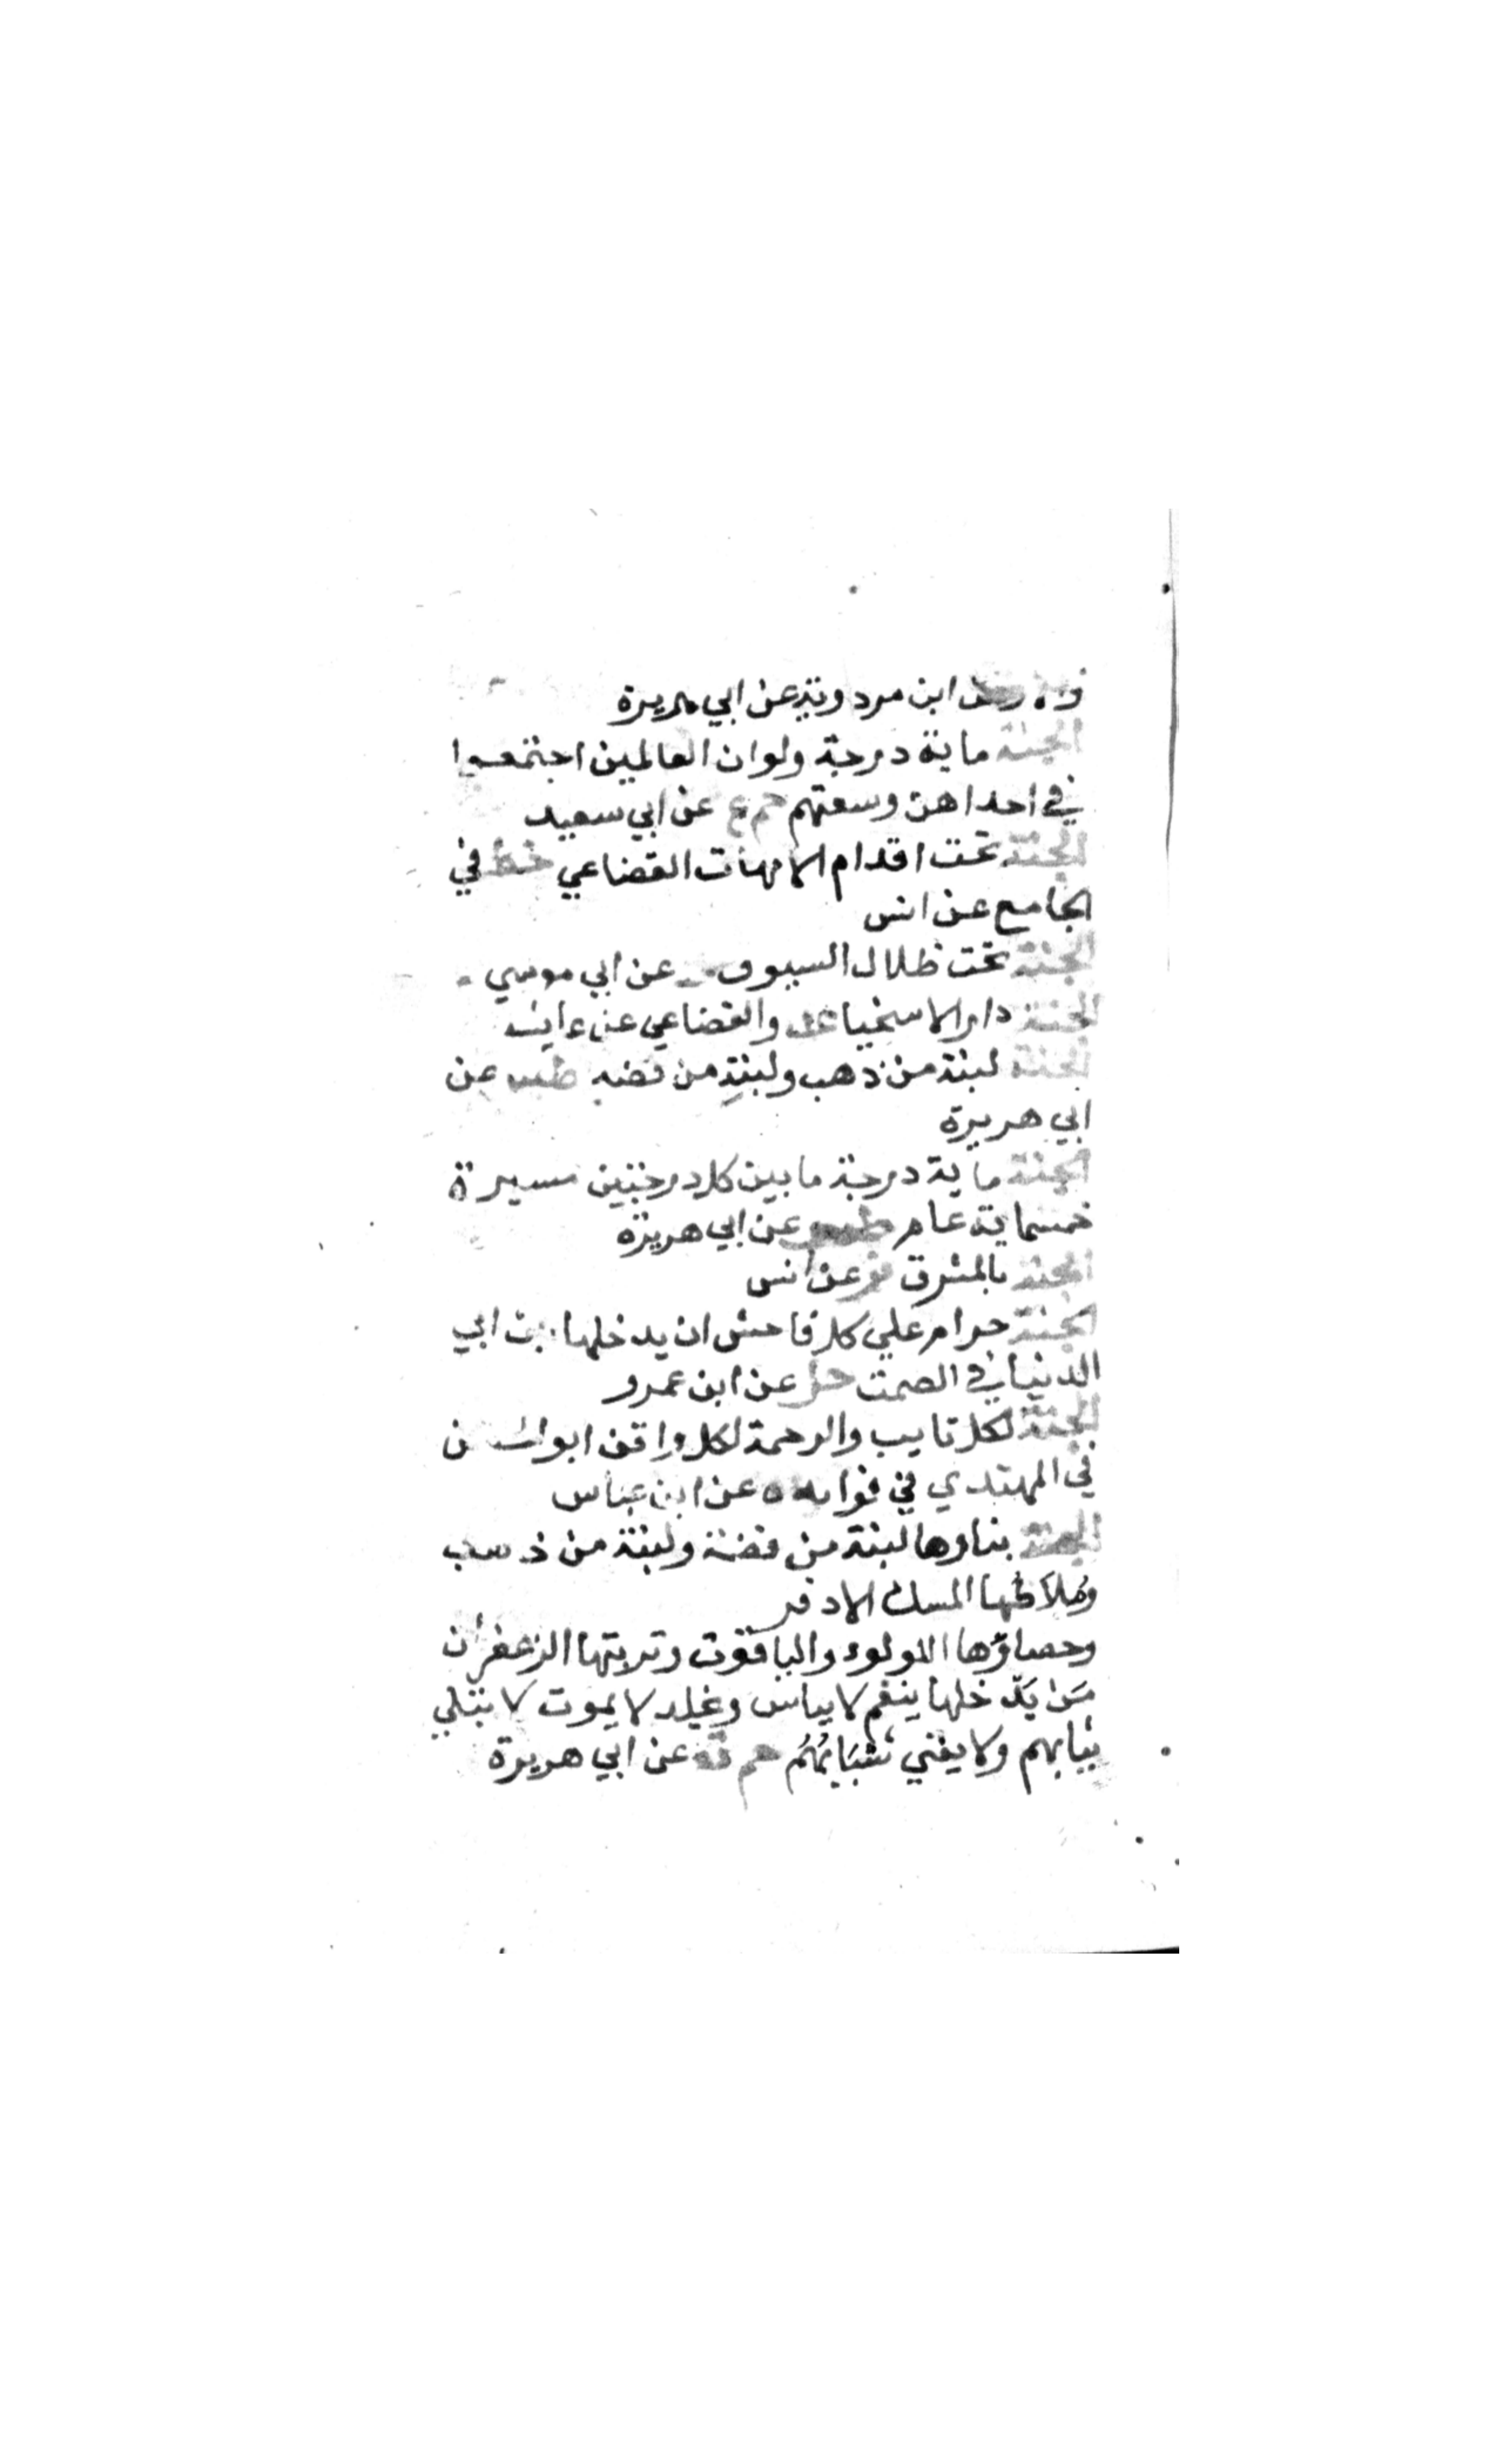 ابن مردويه عن ابي هريرة
الجنة ماية درجة ولو ان العالمين اجتمعوا
في احداهن وسعتهم حم ع عن ابي سعيد
الجنة تحت اقدام الامهات القضاعي خط في
الجامع عن انس
الجنة تحت ظلال السيوف عن ابي موسي
الجنة دار الاسخيا عد والقضاعي عن عايشه
الجنة لبنة من ذهب ولبنة من فضه طس عن
ابي هريرة
الجنة ماية درجة ما بين كل درجتين مسيرة
خمسماية عام طس عن ابي هريرة
الجنة بالمشرق فر عن انس
الجنة حرام علي كل فاحش ان يدخلها ابن ابي
الدنيا في الصمت حل عن ابن عمرو
الجنة لكل تايب والرحمة لكل واقف ابو الحسن
في المهتدي في فوايده عن ابن عباس
الجنة بناوها لبنة من فضة ولبنة من ذهب
وملاطها المسك الادفر
وحصاؤها اللولوء والياقوت وتربتها الزعفران
مَن يَدخلها ينعم لا يباس ويخلد لا يموت لا تبلي
ثيابهم ولا يفني شَبَابُهُم حم ت عن ابي هريرة